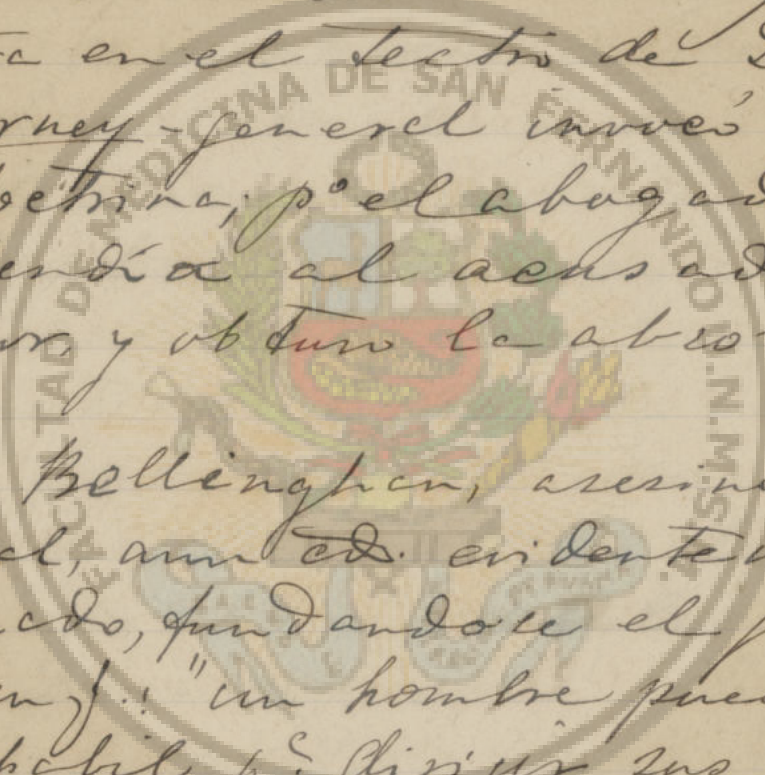 en el teatro de
rney-general invocó
octrina; pº el abogad
endía al acusad
y obtuvo la abso
Bellinghan, asesin
al, aun cdº. evidente
ado, fundandose el
"un hombre pue
habil pª dirijir sus
FACULTAD DE MEDICINA DE SAN FERNANDO U.N.M.S.M.